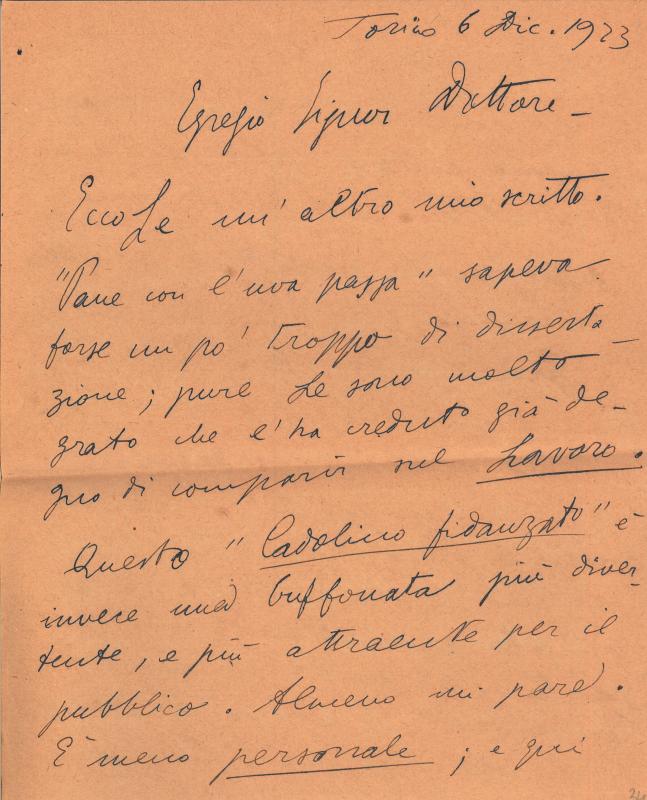 Torino 6 Dic. 1923
Egregio Signor Dottore -
EccoLe un' altro mio scritto.
"Pane con l'uva passa" sapeva
forse un po' troppo di disserta-
zione; pure Le sono molto
grato che l'ha creduto già de-
gno di comparir sul Lavoro.
Questo "Ladolino fidanzato" è
invece una buffonata più diver-
tente, e più attraente per il
pubblico. Almeno mi pare.
È meno personale; e qui